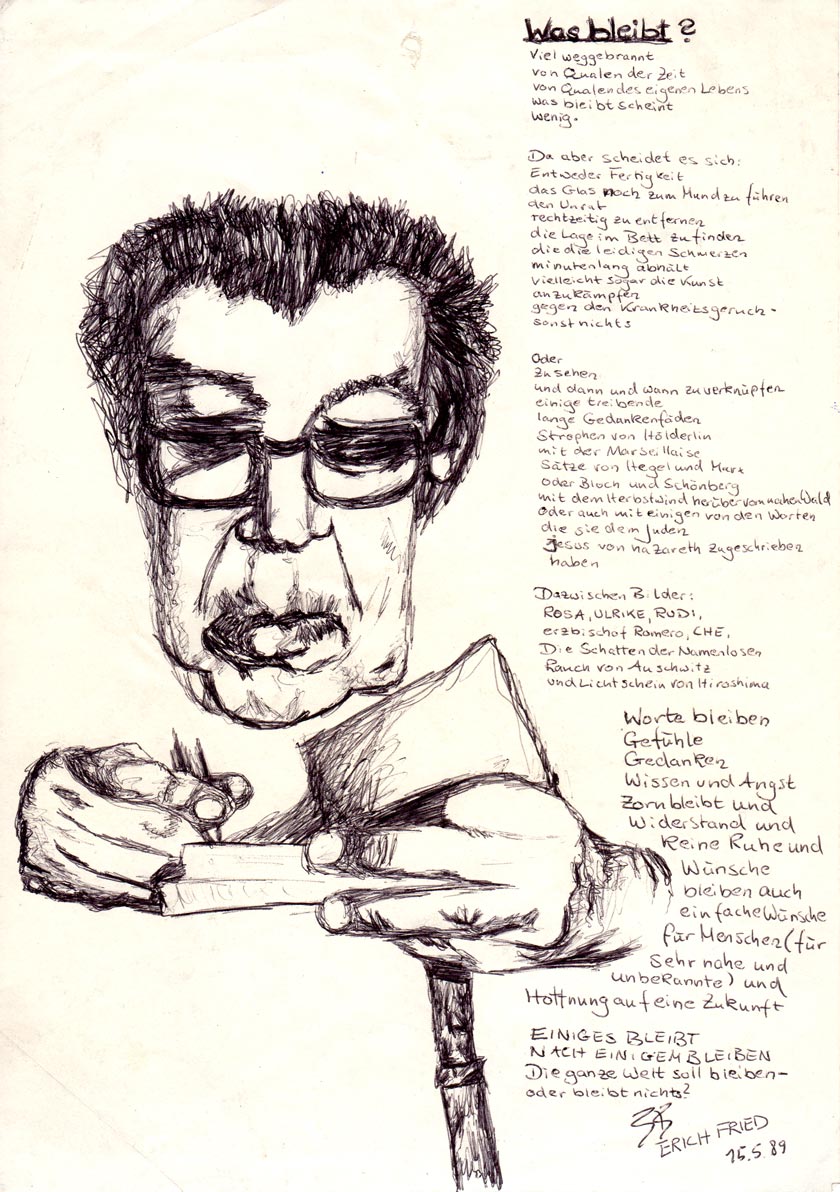 Was bleibt?
Viel weggebrannt
von Qualen der Zeit
von Qualen des eigenen Lebens
was bleibt scheint
wenig.
Da aber scheidet es sich:
Entweder Fertigkeit
das Glas noch zum Mund zu führen
den Unrat
rechtzeitig zu entfernen
die Lage im Bett zu finden
die die leidigen Schmerzen
minutenlang abhält
vielleicht sogar die Kunst
anzukämpfen
gegen den Krankheitsgeruch -
sonst nichts
Oder
zu sehen
und dann und wann zu verknüpfen
einige treibende
lange Gedankenfäden
Strophen von Hölderlin
mit der Marseillaise
Sätze von Hegel und Marx
oder Bloch und Schönberg
mit dem Herbstwind herüber vom nahen Wald
Oder auch mit einigen von den Worten
die sie dem Juden
Jesus von nazareth zugeschrieben
haben
Dazwischen Bilder:
ROSA, ULRIKE, RUDI,
erzbischof Romero, CHE,
Die Schatten der Namenlosen
Rauch von Auschwitz
und Lichtschein von Hiroshima
Worte bleiben
Gefühle
Gedanken
Wissen und Angst
Zorn bleibt und
Widerstand und
Keine Ruhe und
Wünsche
bleiben auch
einfache Wünsche
für Menschen (für
sehr nahe und
unbekannte) und
Hoffnung auf eine Zukunft
EINIGES BLEIBT
NACH EINIGEM BLEIBEN
Die ganze Welt soll bleiben -
oder bleibt nichts?
ERICH FRIED
15.5.89